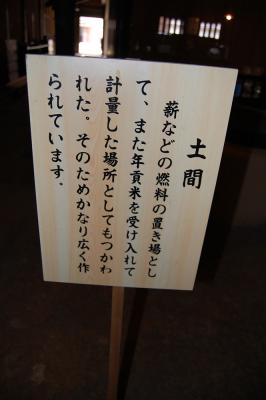 土間
薪などの燃料の置き場とし
て、また年貢米を受け入れて
計量した場所としてもつかわ
れた。そのためかなり広く作
られています。